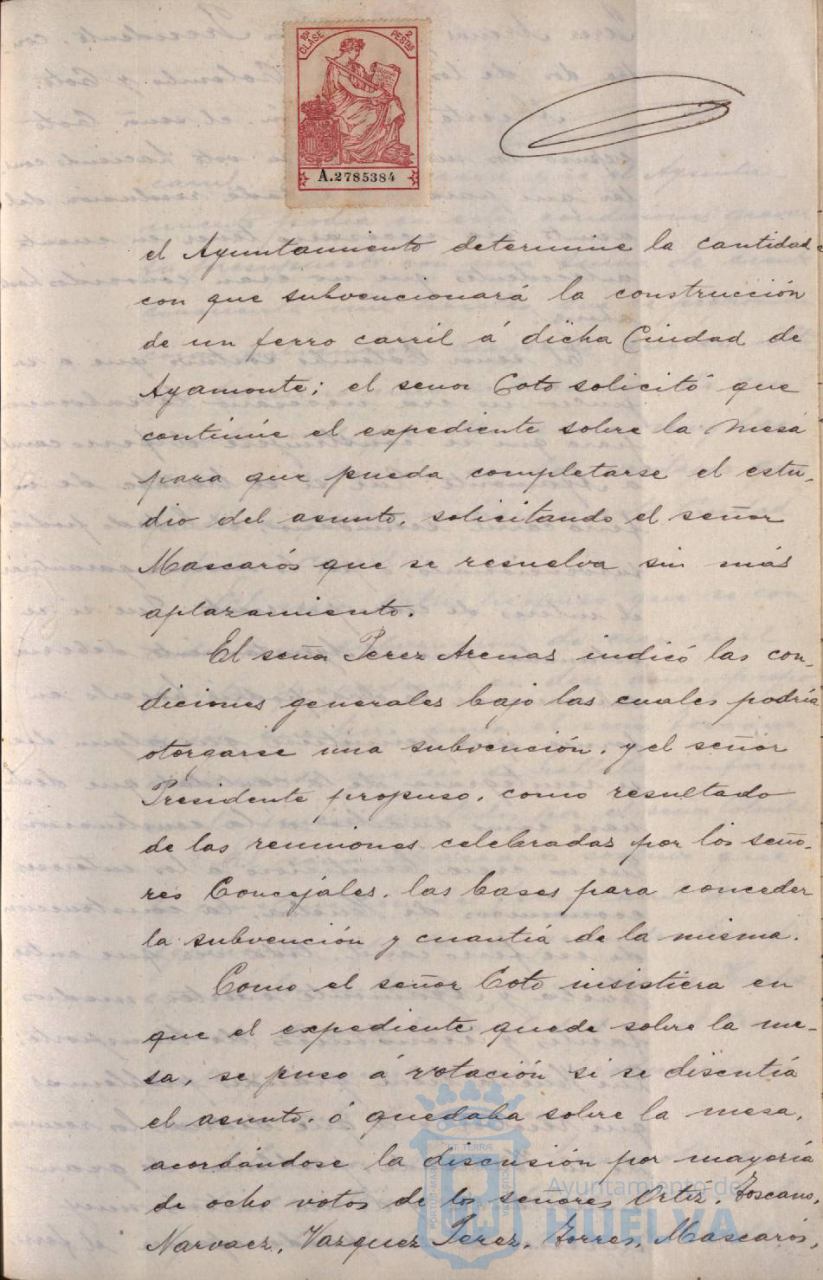 10ª CLASE
2 PESTAS
A.2785384
el Ayuntamiento determine la cantidad
con que subvencionará la construcción
de un ferro carril á dicha Ciudad de
Ayamonte; el señor Coto solicitó que
continúe el expediente sobre la mesa
para que pueda completarse el estu-
dio del asunto, solicitando el señor
Mascarós que se resuelva sin más
aplazamiento.
El señor Perez Arenas indicó las con-
diciones generales bajo las cuales podría
otorgarse una subvención, y el señor
Presidente propuso, como resultado
de las reuniones celebradas por los seño-
res Concejales, las bases para conceder
la subvención y cuantía de la misma.
Como el señor Coto insistiera en
que el expediente quede sobre la me-
sa, se puso á votación si se discutía
el asunto, ó quedaba sobre la mesa,
acordándose la discusión por mayoría
de ocho votos de los señores Ortiz, Toscano,
Narvaez, Vazquez Perez, Torres, Mascarós,
Ayuntamiento de
HUELVA